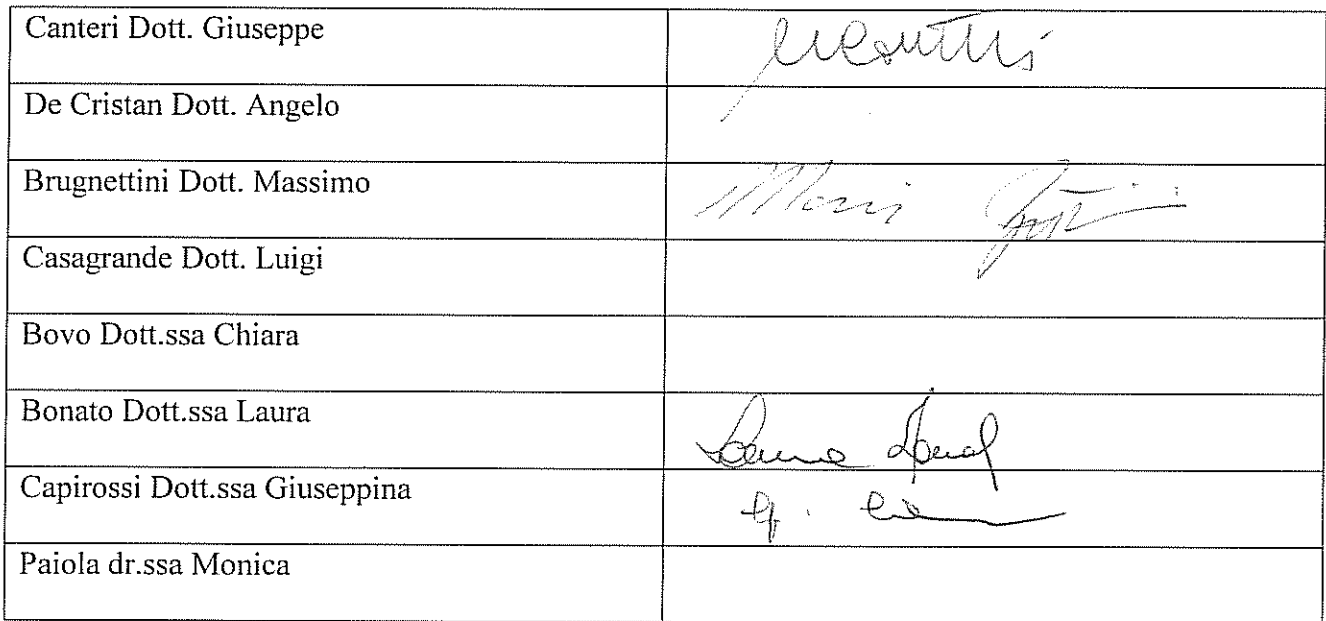 Canteri Dott. Giuseppe
De Cristan Dott. Angelo
Brugnettini Dott. Massimo
Casagrande Dott. Luigi
Bovo Dott.ssa Chiara
Bonato Dott.ssa Laura
Laura
Capirossi Dott.ssa Giuseppina
G.
Paiola dr.ssa Monica